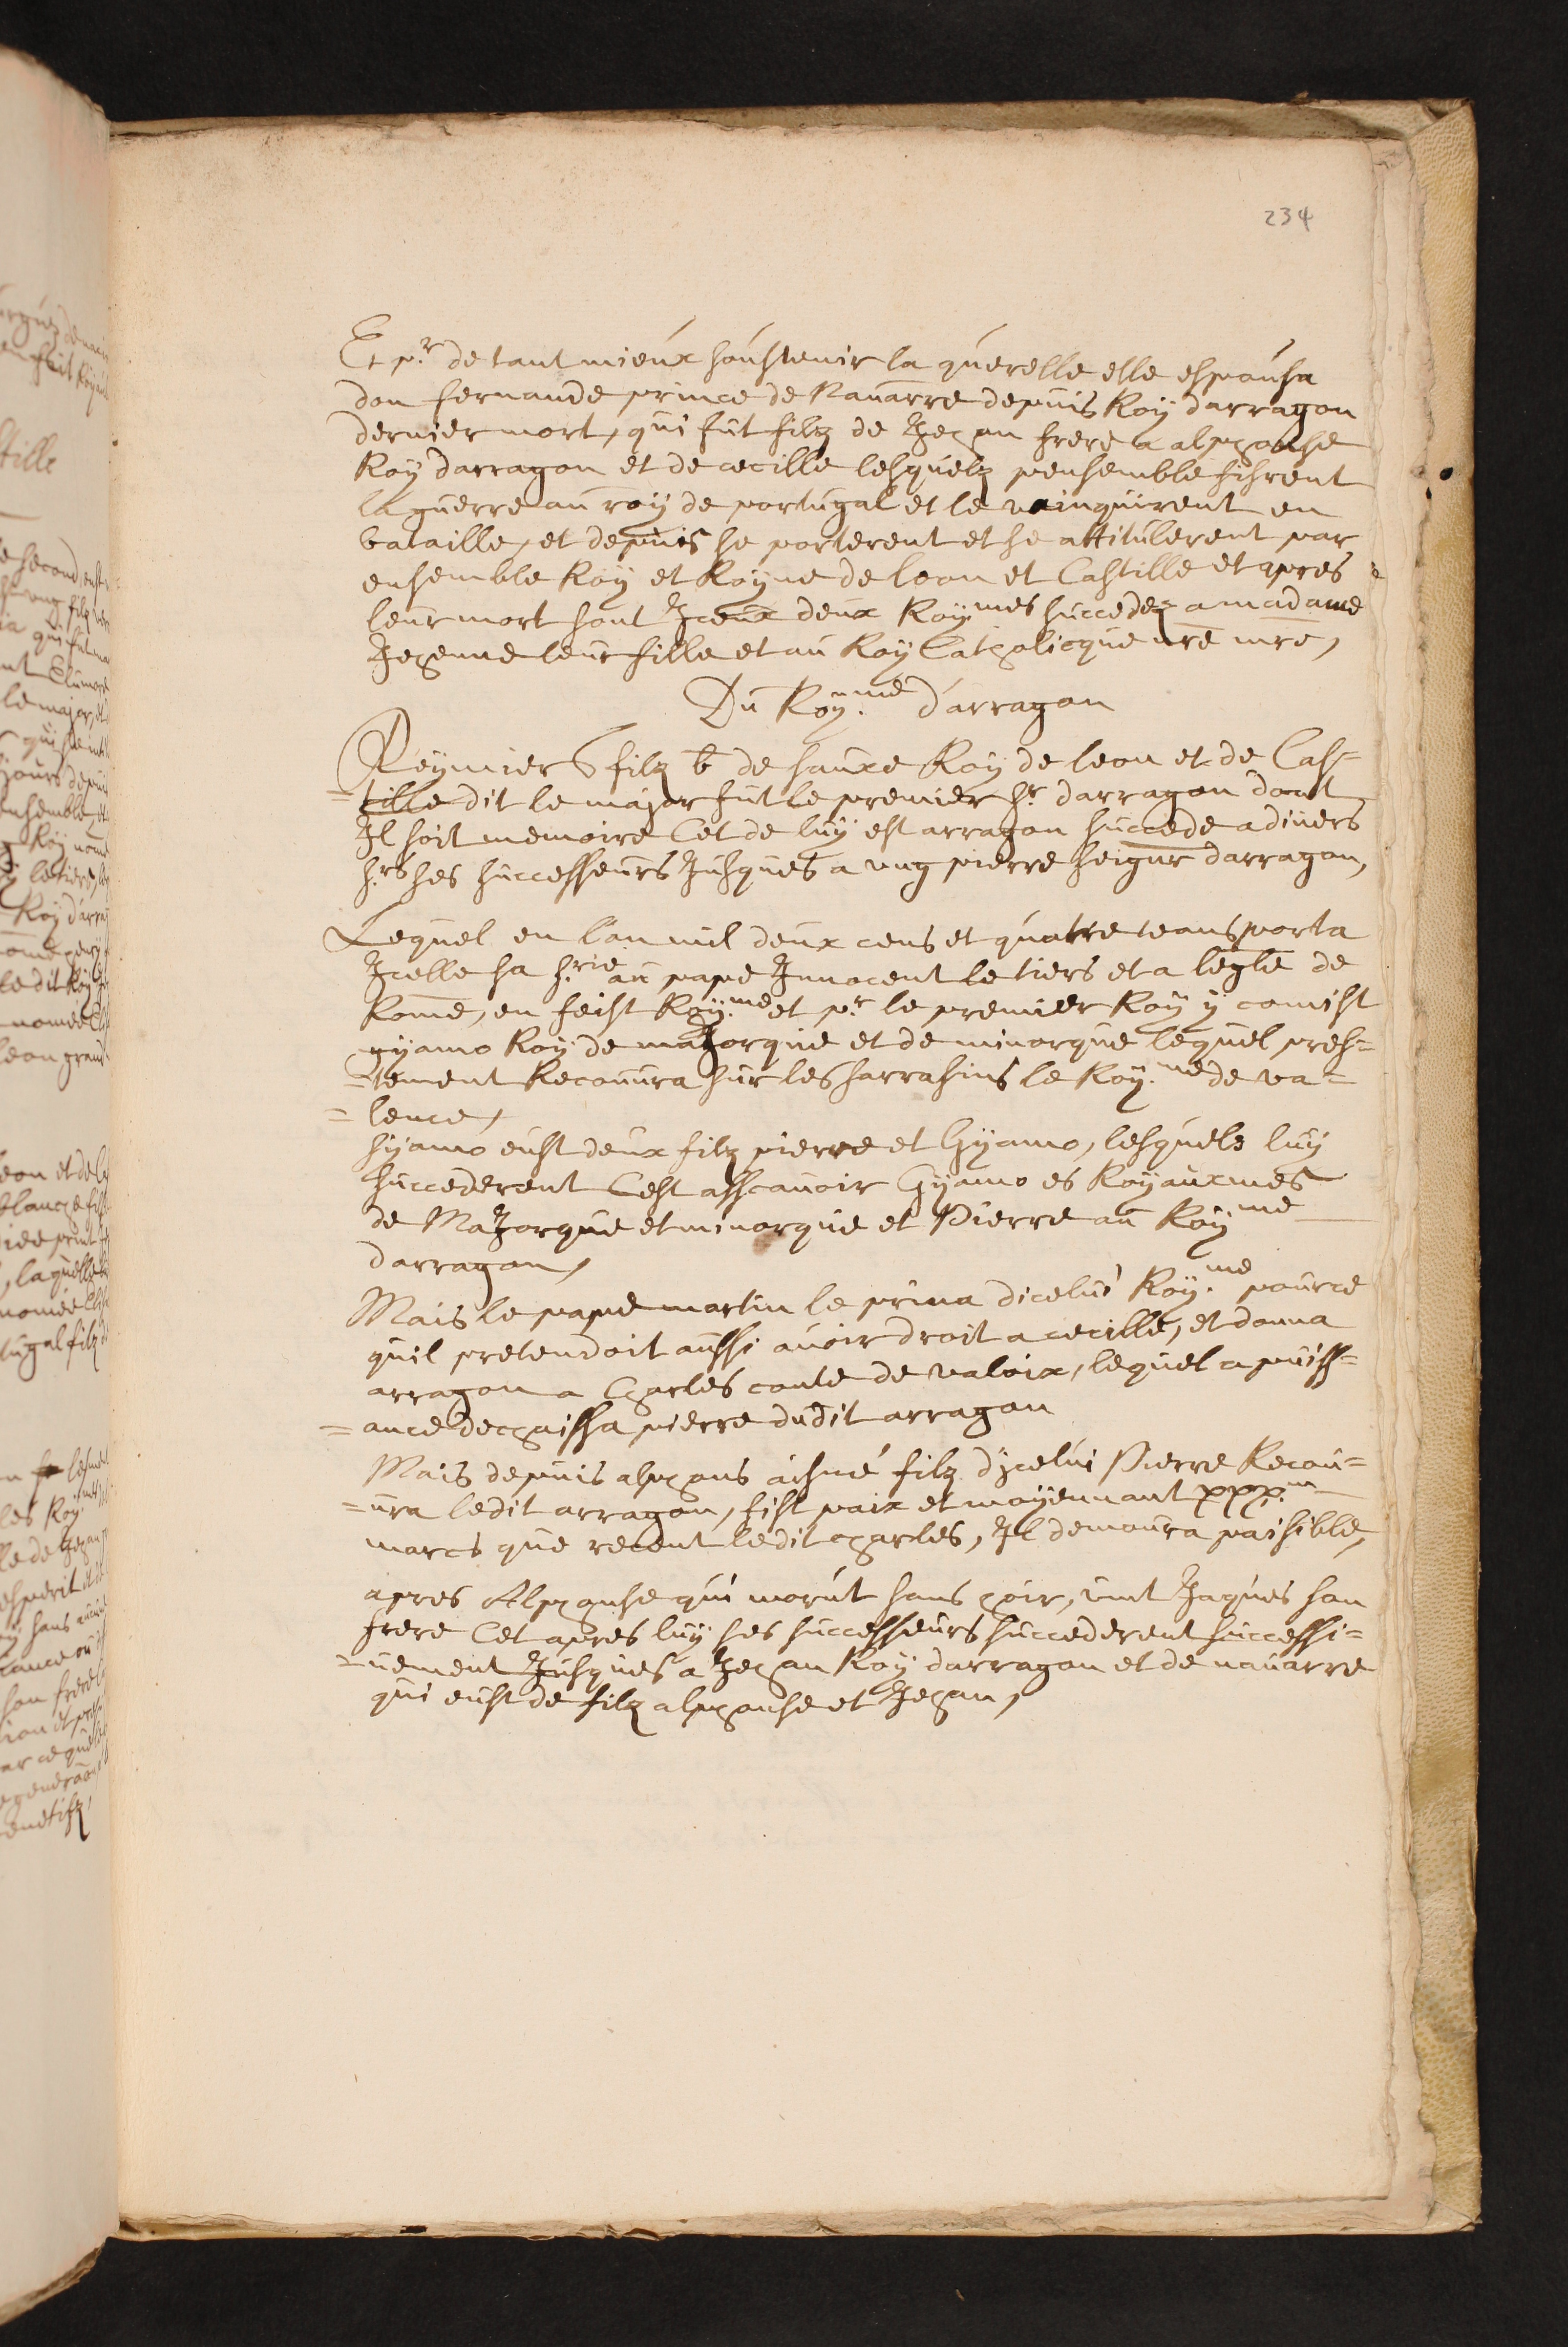 234
Et p.r de tant mieux soustenir la querelle elle espousa
don fernande prince de Navarre depuis Roy darragon
dernier mort, qui fut filz de Jehan frere a alphonse
Roy darragon et de cecille lesquelz pensemble fisrent
la guerre au roy de portugal et le vainquirent en
bataille, et depuis se porterent et se attitulerent par
ensemble Roy et Royne de leon et Castille et apres
leur mort sont Jceux deux Roy.mes succedez a madame
Jehenne leur fille et au Roy Catholicque nre mre,
Du Roy.me d'arragon
Reymier filz b de sanxe Roy de leon et de Cas=
=tille dit le major fut le premier s.r darragon dont
Il soit memoire Cet de luy est arragon succede a divers
s.rs ses successeurs Jusques a ung pierre seignr darragon,
Lequel en l'an mil deux cens et quatre transporta
Jcelle sa s.rie au pape Innocent le tiers et a legle de
Rome, en feist Roy.me et p.r le premier Roy y comist
gyamo Roy de maJorque et de minorque lequel pres=
=tement Recouura sur les sarrasins le Roy.me de va=
=lence,
Gyamo eust deux filz pierre et Gyamo, lesquels luy
succederent C'est asscauoir Gyamo es Royauxmes
de MaJorque et minorque et Pierre au Roy.me
darragon,
Mais le pape martin le priua dicelui Roy.me pource
quil pretendoit aussi auoir droit a cecille, et donna
arragon a Charles conte de valoix, lequel a puiss=
=ance dechassa pierre dudit arragon
Mais depuis alphons aisné filz d'jcelui Pierre Recou=
=ura ledit arragon, fist paix et moyennant xxx.m
marcs que receut ledit charles, Il demoura paisible,
apres Alphonse qui morut sans hoir, vint Jaques son
frere Cet apres luy ses successeurs succederent successi=
=uement Jusques a Jehan Roy darragon et de nauarre
qui eust de filz alphonse et Jehan,